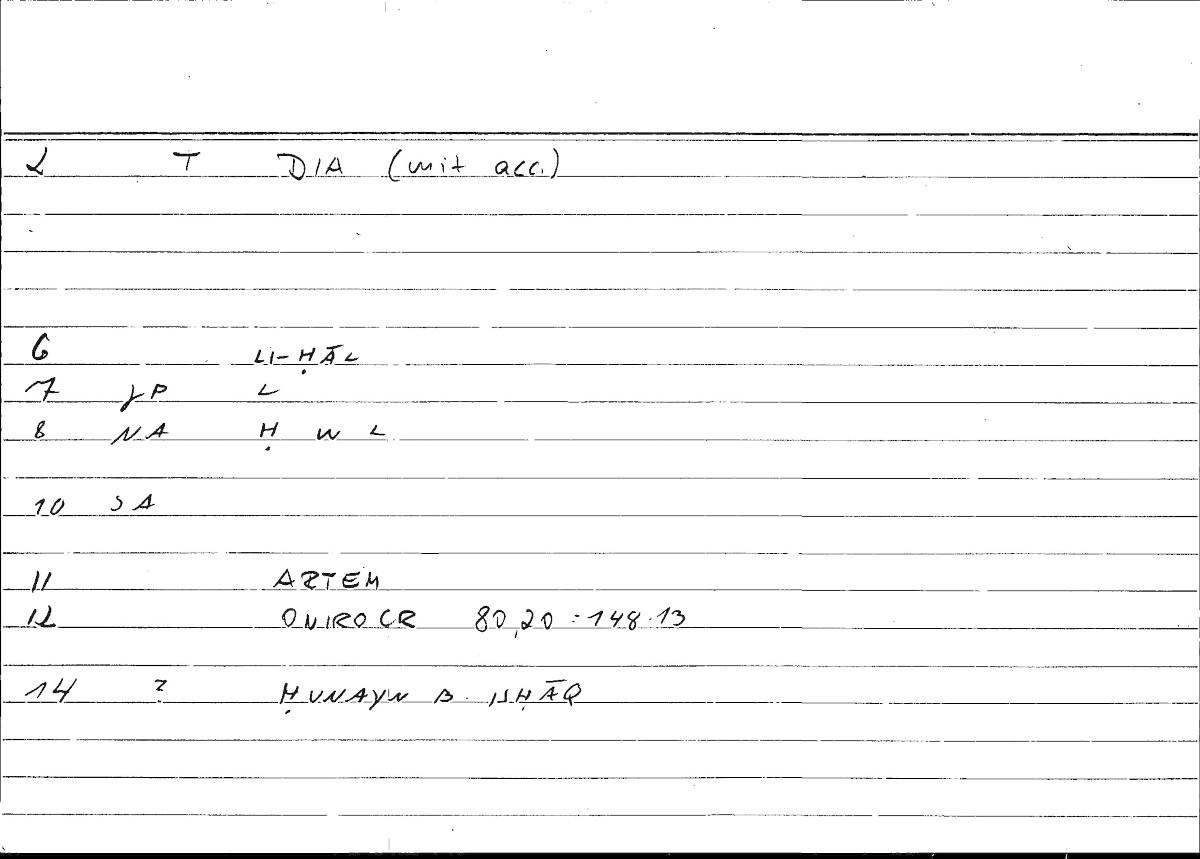 2 T DIA (mit acc.)
6 LI-ḤĀL
7 yP L
8 NA Ḥ W L
10 SA
11 ARTEM
12 ONIROCR 80,20 = 148.13
14 ? ḤUNAYN B. ISḤĀQ